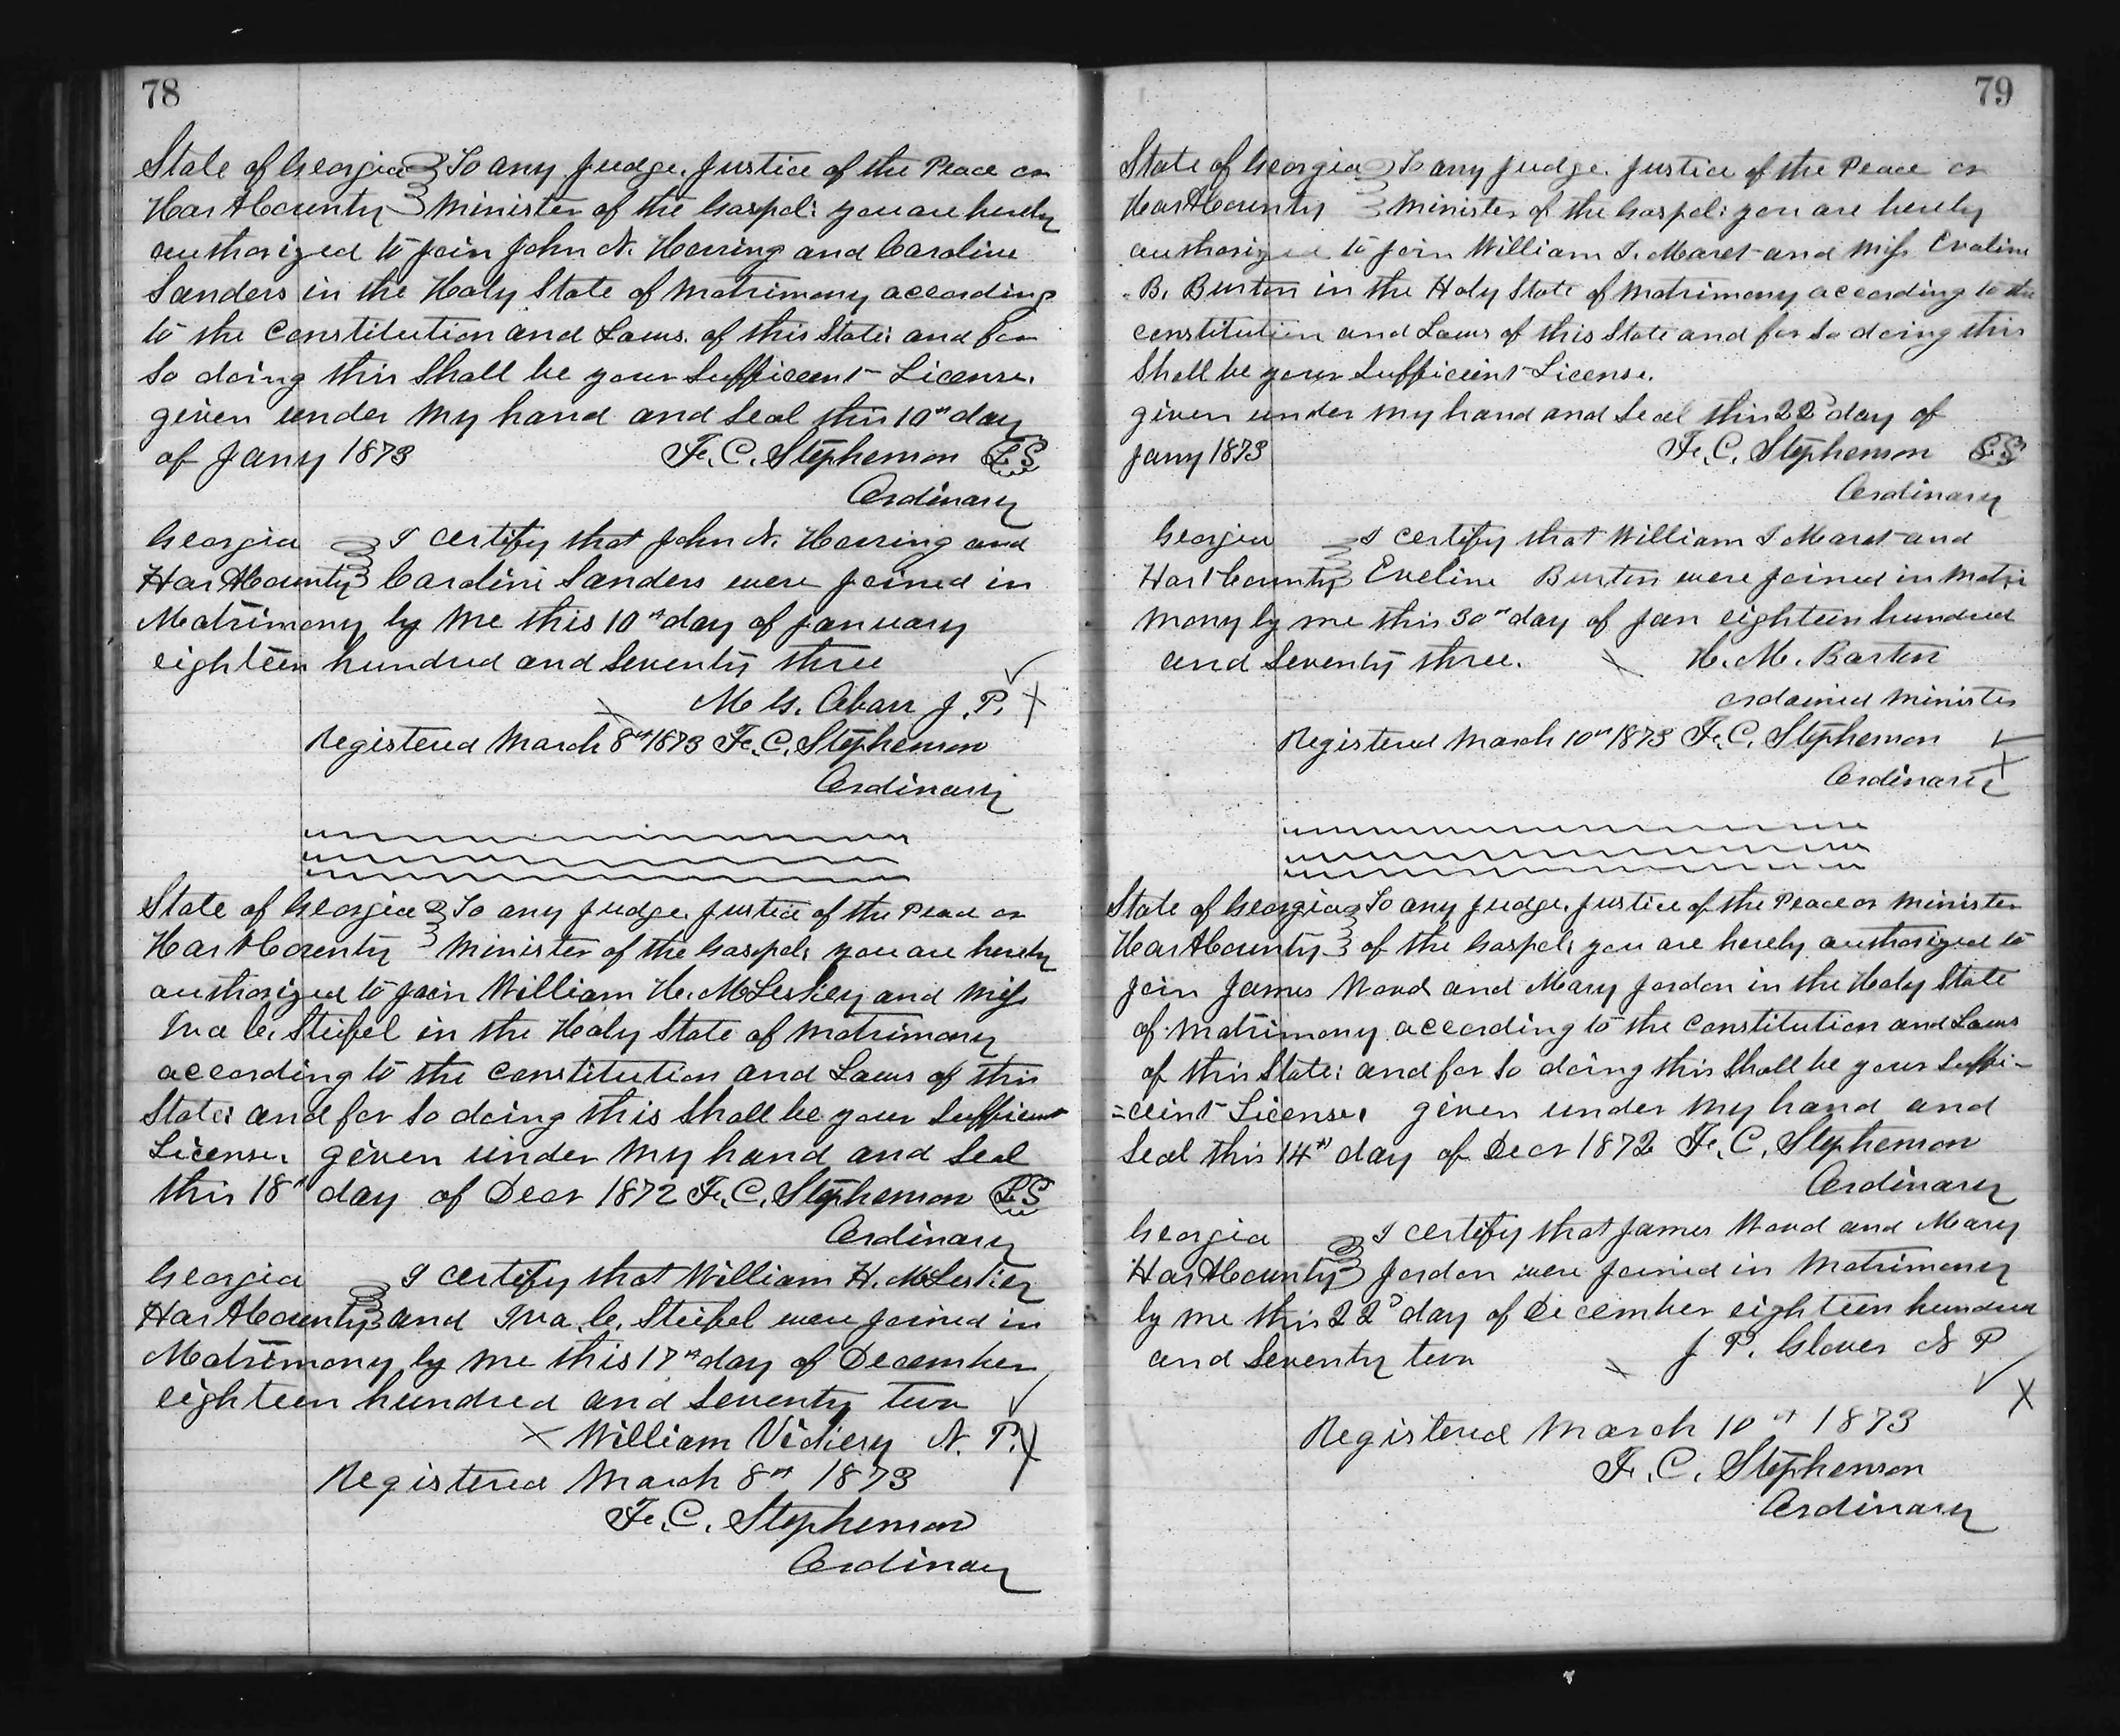 78
State of Georgia To any Judge. Justice of the Peace or
Hart County Minister of the Gospel: you are hereby
authorized to join John N. Herring and Caroline
Sanders in the Holy State of Matrimony according
to the Constitution and Laws. of this State: and for
So doing this Shall be your Sufficient License.
given under My hand and Seal this 10th day
of Jany 1873 F. C. Stephenson LS
Ordinary
Georgia I certify that John N. Herring and
Hart County Caroline Sanders were joined in
Matrimony by Me this 10th day of January
eighteen hundred and Seventy three
M G. J. P.
Registered March 8th 1873 F. C. Stephenson
Ordinary
State of Georgia To any Judge. Justice of the Peace or
Hart County Minister of the Gospel: you are hereby
authorized to join William H. McLeskey and Miss
Iva C. Steifel in the Holy State of Matrimony
according to the Constitution and Laws of this
State: and for So doing this Shall be your Sufficient
License. given under My hand and Seal
this 18th day of Decr 1872 F. C. Stephenson LS
Ordinary
Georgia I certify that William H. McLeskey
Hart County and Iva C. Steifel were joined in
Matrimony by Me this 17th day of December
eighteen hundred and Seventy two
William Vickery N. P.
Registered March 8th 1873
F. C. Stephenson
Ordinary
79
State of Georgia To any Judge. Justice of the Peace or
Hart County Minister of the Gospel: you are hereby
authorized to join William T. Maret and Miss Evaline
B. Burton in the Holy State of Matrimony according to the
constitution and Laws of this State and for So doing this
Shall be your Sufficient License.
given under My hand and Seal this 22d day of
Jany 1873 F. C. Stephenson LS
Ordinary
Georgia I certify that William T Maret and
Hart County Eveline Burton were joined in Matri
mony by me this 30th day of Jan eighteen hundred
and Seventy three. H. M. Barton
ordained Minister
Registered March 10th 1873 F. C. Stephenson
Ordinary
State of Georgia To any Judge. Justice of the Peace or Minister
Hart County of the Gospel: you are hereby authorized to
join James Wood and Mary Jordon in the Holy State
of Matrimony according to the Constitution and Laws
of this State: and for So doing this Shall be your Suffi-
=cient License. given under My hand and
Seal this 14th day of Decr 1872 F. C. Stephenson
Ordinary
Georgia I certify that James Wood and Mary
Hart County Jordon were joined in Matrimony
by me this 22d day of December eighteen hundred
and Seventy two J. P. Glover N P
Registered March 10th 1873
F. C. Stephenson
Ordinary